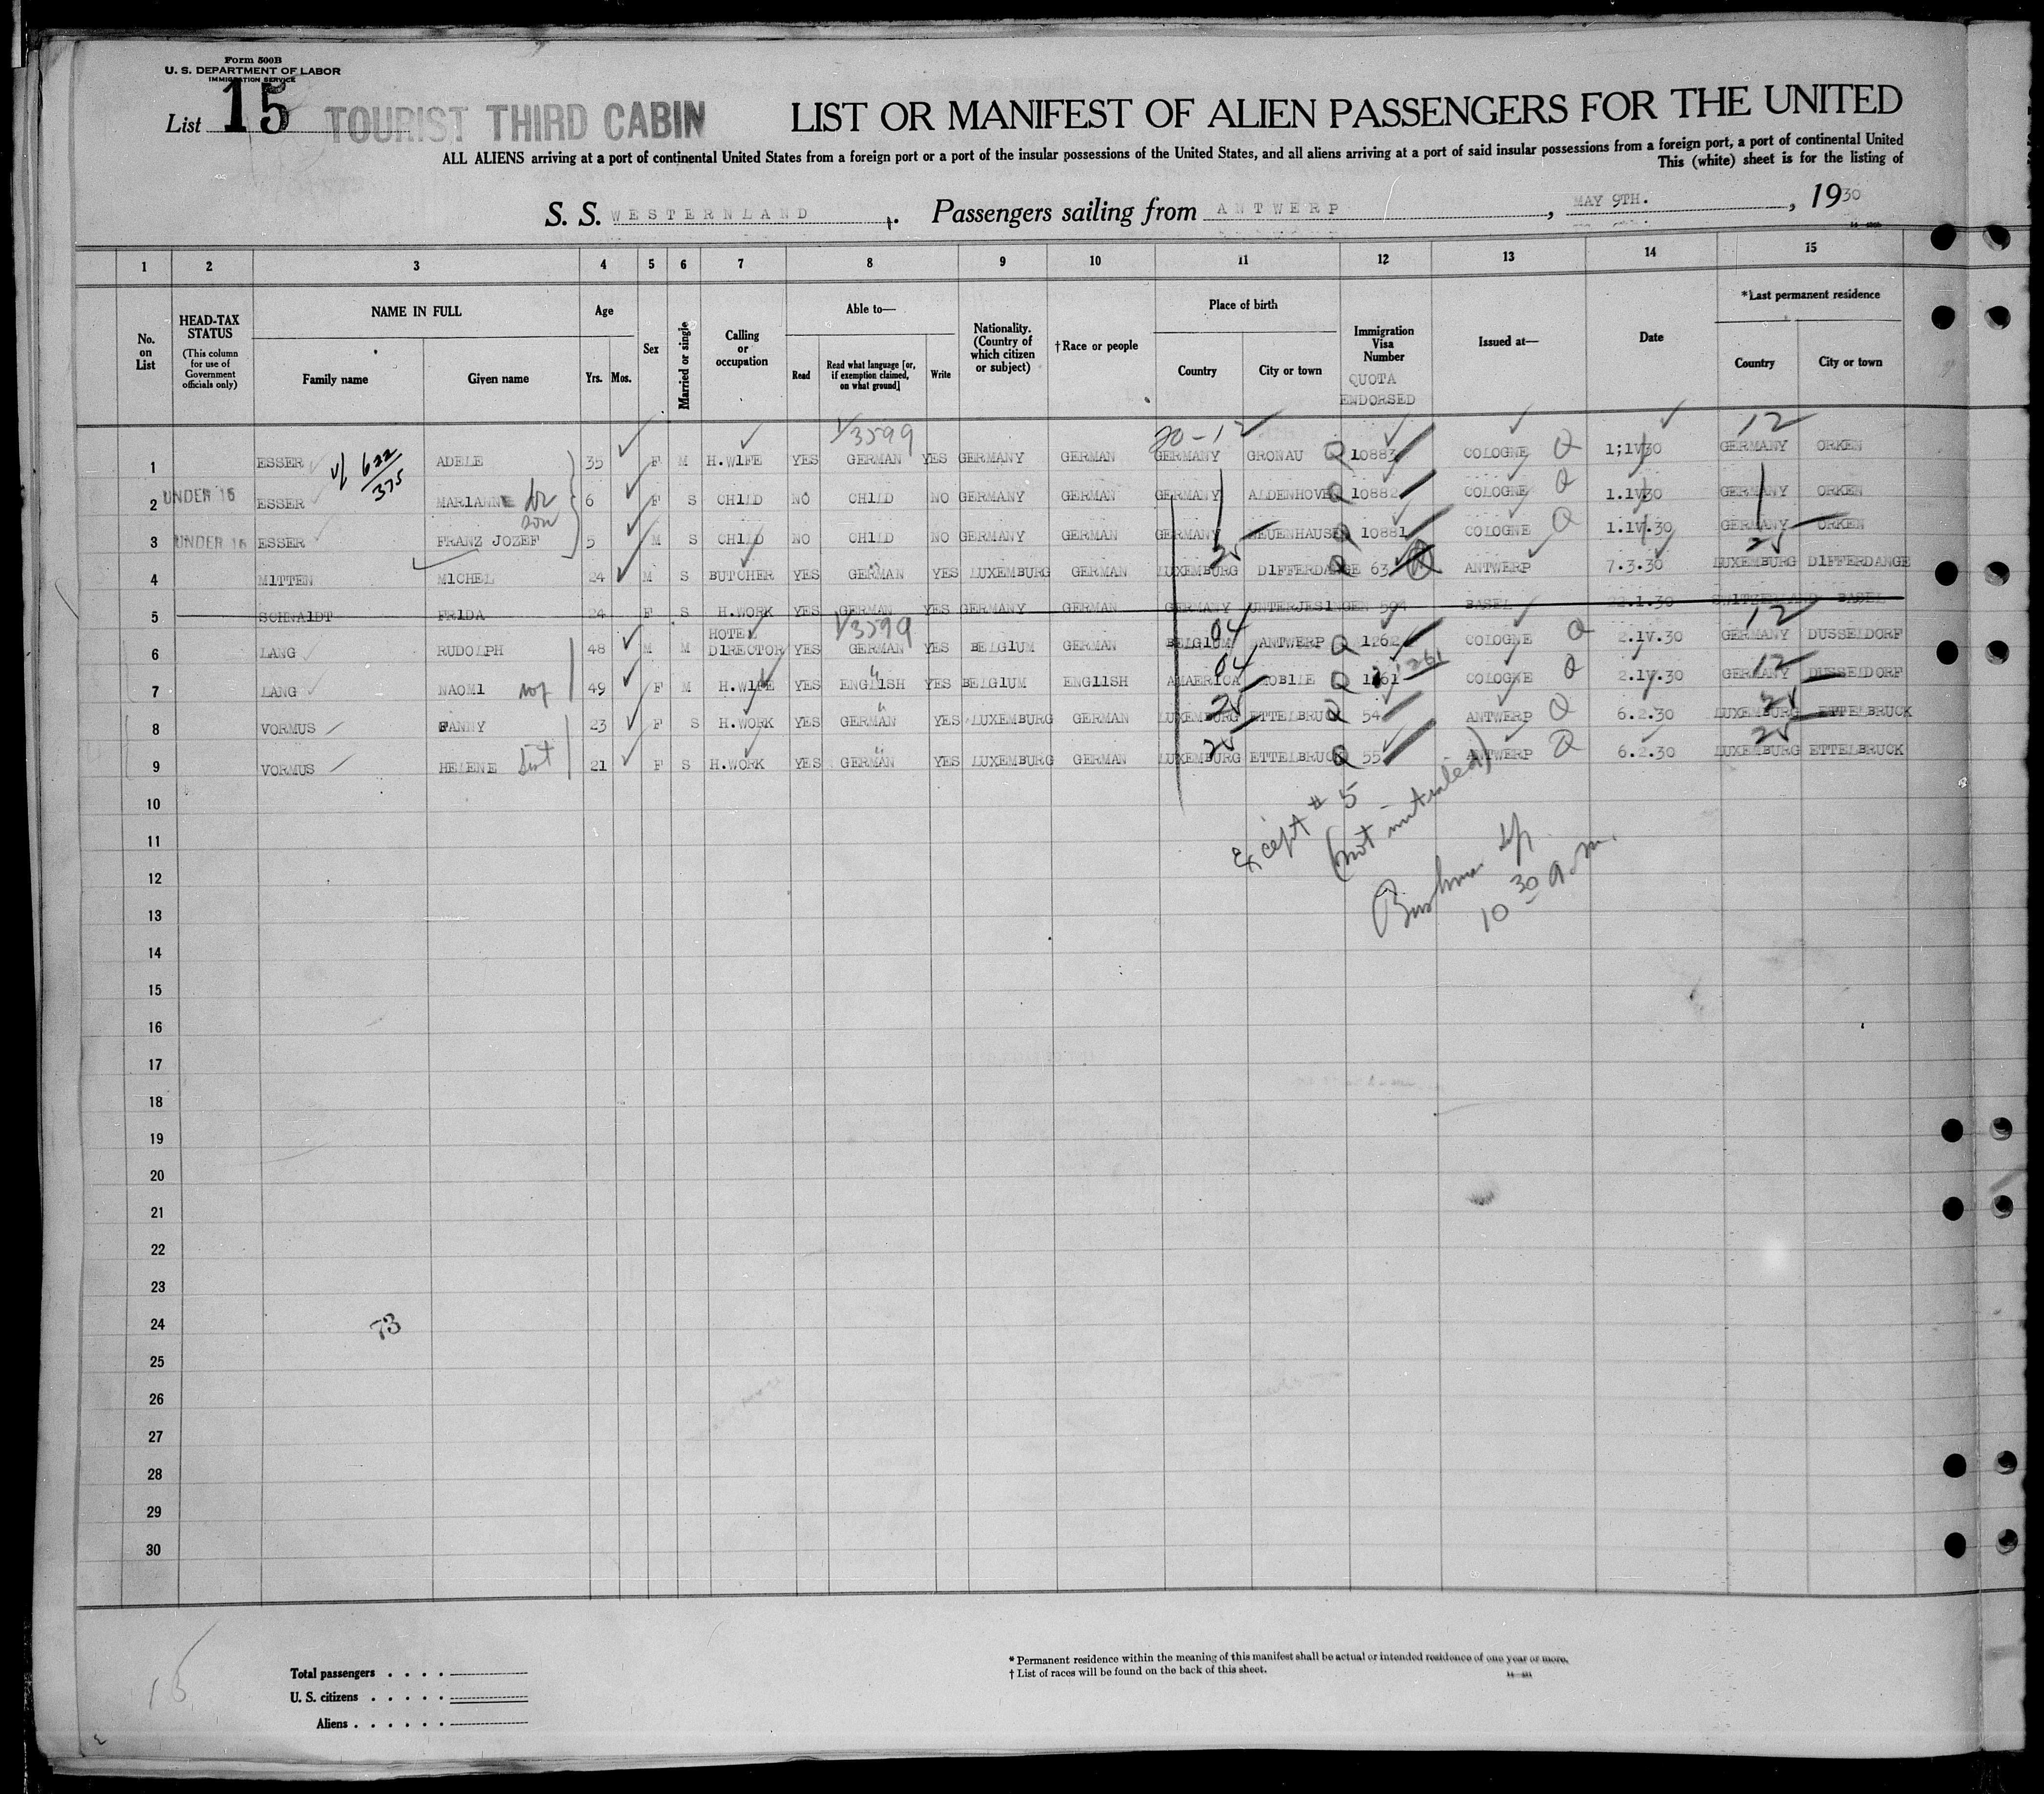 Form 500B
U. S. DEPARTMENT OF LABOR
IMMIGRATION SERVICE
List 15 TOURIST THIRD CABIN LIST OR MANIFEST OF ALIEN PASSENGERS FOR THE UNITED
ALL ALIENS arriving at a port of continental United States from a foreign port or a port of the insular possessions of the United States, and all aliens arriving at a port of said insular possessions from a foreign port, a port of continental United
This (white) sheet is for the listing of
S. S. WESTERNLAND, Passengers sailing from ANTWERP, MAY 9TH., 1930
1 2 3 4 5 6 7 8 9 10 11 12 13 14 15
No. on List
HEAD-TAX STATUS
(This column for use of Government officials only)
NAME IN FULL
Family name Given name
Age
Yrs. Mos.
Sex
Married or single
Calling or occupation
Able to—
Read Read what language [or, if exemption claimed, on what ground] Write
Nationality. (Country of which citizen or subject)
†Race or people
Place of birth
Country City or town
Immigration Visa Number
QUOTA
ENDORSED
Issued at—
Date
*Last permanent residence
Country City or town
1/3599 20-12 12
1 ESSER 622/375 ADELE 35 F M H.WIFE YES GERMAN YES GERMANY GERMAN GERMANY GRONAU Q 10883 COLOGNE Q 1;1V30 GERMANY ORKEN
2 UNDER 16 ESSER MARIANNE 6 F S CHILD NO CHILD NO GERMANY GERMAN GERMANY ALDENHOVEN Q 10882 COLOGNE Q 1.1V30 GERMANY ORKEN
son
3 UNDER 16 ESSER FRANZ JOZEF 5 M S CHILD NO CHILD NO GERMANY GERMAN GERMANY NEUENHAUSEN Q 10881 COLOGNE Q 1.1V.30 GERMANY ORKEN
25 25
4 MITTEN MICHEL 24 M S BUTCHER YES GERMAN YES LUXEMBURG GERMAN LUXEMBURG DIFFERDANGE 63 Q ANTWERP 7.3.30 LUXEMBURG DIFFERDANGE
5 SCHNAIDT FRIDA 24 F S H.WORK YES GERMAN YES GERMANY GERMAN GERMANY UNTERJESINGEN 594 BASEL 22.1.30 SWITZERLAND BASEL
1/3599 04 12
6 LANG RUDOLPH 48 M M HOTEL DIRECTOR YES GERMAN YES BELGIUM GERMAN BELGIUM ANTWERP Q 1262 COLOGNE Q 2.1V.30 GERMANY DUSSELDORF
04 1261 12
7 LANG NAOMI 49 F M H.WIFE YES ENGLISH YES BELGIUM ENGLISH AMAERICA MOBILE Q 1261 COLOGNE Q 2.1V.30 GERMANY DUSSELDORF
25 25
8 VORMUS FANNY 23 F S H.WORK YES GERMAN YES LUXEMBURG GERMAN LUXEMBURG ETTELBRUCK Q 54 ANTWERP Q 6.2.30 LUXEMBURG ETTELBRUCK
25 25
9 VORMUS HELENE Sist 21 F S H.WORK YES GERMAN YES LUXEMBURG GERMAN LUXEMBURG ETTELBRUCK Q 55 ANTWERP Q 6.2.30 LUXEMBURG ETTELBRUCK
10
Except # 5
(not initialed)
11
12
10 30 a.m.
13
14
15
16
17
18
19
20
21
22
23
24 73
25
26
27
28
29
30
15
Total passengers
U. S. citizens
Aliens
* Permanent residence within the meaning of this manifest shall be actual or intended residence of one year or more.
† List of races will be found on the back of this sheet.